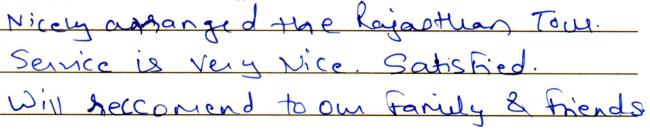 Nicely arranged the Rajasthan Tour.
Service is very Nice. Satisfied.
Will reccomend to our family & friends